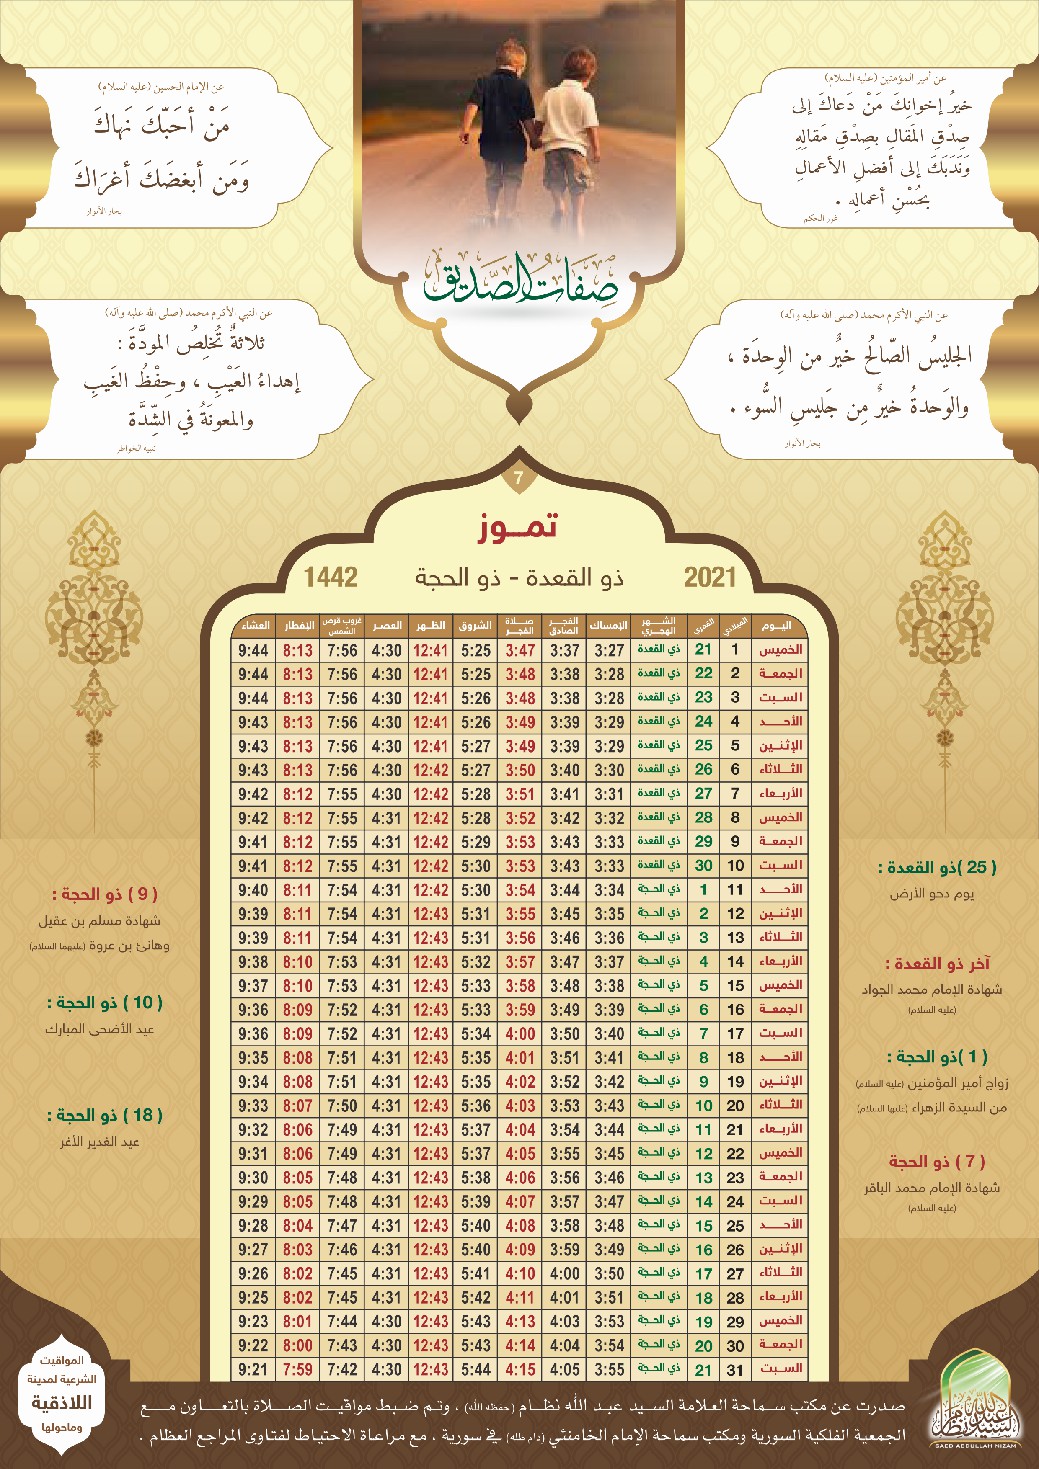 عن أمير المؤمنين (عليه السلام)
خيرُ إخوانِكَ مَنْ دَعاكَ إلى
صِدْقِ المَقالِ بصِدْقِ مَقالِهِ
وَنَدَبَكَ إلى أفضلِ الأعمالِ
بحُسْنِ أعمالِهِ .
غرر الحكم
عن الإمام الحسين (عليه السلام)
مَنْ أحَبّكَ نَهاكَ
وَمَن أبغضَكَ أغرَاكَ
بحار الأنوار
صفات الصديق
عن النبي الأكرم محمد (صلى الله عليه وآله)
الجليسُ الصّالحُ خيرٌ من الوِحدَة ،
والوَحدةُ خيرٌ مِن جَليسِ السُّوء .
بحار الأنوار
عن النبي الأكرم محمد (صلى الله عليه وآله)
ثلاثةٌ تُخلِصُ المودَّةَ :
إهداءُ العَيْبِ ، وحِفْظُ الغَيبِ
والمعونَةُ في الشِّدَّة
تنبيه الخواطر
7
تمـوز
2021 ذو القعدة - ذو الحجة 1442
اليـوم الميلادي القمري الشـهر الهجـري الإمساك الفجـر الصادق صـلاة الفجـر الشروق الظـهر العصـر غروب قرص الشمس الإفطار العشاء
الخميس 1 21 ذي القعدة 3:27 3:37 3:47 5:25 12:41 4:30 7:56 8:13 9:44
الجمعـة 2 22 ذي القعدة 3:28 3:38 3:48 5:25 12:41 4:30 7:56 8:13 9:44
السـبت 3 23 ذي القعدة 3:28 3:38 3:48 5:26 12:41 4:30 7:56 8:13 9:44
الأحـد 4 24 ذي القعدة 3:29 3:39 3:49 5:26 12:41 4:30 7:56 8:13 9:43
الإثنـين 5 25 ذي القعدة 3:29 3:39 3:49 5:27 12:41 4:30 7:56 8:13 9:43
الثـلاثاء 6 26 ذي القعدة 3:30 3:40 3:50 5:27 12:42 4:30 7:56 8:13 9:43
الأربـعاء 7 27 ذي القعدة 3:31 3:41 3:51 5:28 12:42 4:30 7:55 8:12 9:42
الخميس 8 28 ذي القعدة 3:32 3:42 3:52 5:28 12:42 4:31 7:55 8:12 9:42
الجمعـة 9 29 ذي القعدة 3:33 3:43 3:53 5:29 12:42 4:31 7:55 8:12 9:41
السـبت 10 30 ذي القعدة 3:33 3:43 3:53 5:30 12:42 4:31 7:55 8:12 9:41
الأحـد 11 1 ذي الحـجة 3:34 3:44 3:54 5:30 12:42 4:31 7:54 8:11 9:40
الإثنـين 12 2 ذي الحـجة 3:35 3:45 3:55 5:31 12:43 4:31 7:54 8:11 9:39
الثـلاثاء 13 3 ذي الحـجة 3:36 3:46 3:56 5:31 12:43 4:31 7:54 8:11 9:39
الأربـعاء 14 4 ذي الحـجة 3:37 3:47 3:57 5:32 12:43 4:31 7:53 8:10 9:38
الخميس 15 5 ذي الحـجة 3:38 3:48 3:58 5:33 12:43 4:31 7:53 8:10 9:37
الجمعـة 16 6 ذي الحـجة 3:39 3:49 3:59 5:33 12:43 4:31 7:52 8:09 9:36
السـبت 17 7 ذي الحـجة 3:40 3:50 4:00 5:34 12:43 4:31 7:52 8:09 9:36
الأحـد 18 8 ذي الحـجة 3:41 3:51 4:01 5:35 12:43 4:31 7:51 8:08 9:35
الإثنـين 19 9 ذي الحـجة 3:42 3:52 4:02 5:35 12:43 4:31 7:51 8:08 9:34
الثـلاثاء 20 10 ذي الحـجة 3:43 3:53 4:03 5:36 12:43 4:31 7:50 8:07 9:33
الأربـعاء 21 11 ذي الحـجة 3:44 3:54 4:04 5:37 12:43 4:31 7:49 8:06 9:32
الخميس 22 12 ذي الحـجة 3:45 3:55 4:05 5:37 12:43 4:31 7:49 8:06 9:31
الجمعـة 23 13 ذي الحـجة 3:46 3:56 4:06 5:38 12:43 4:31 7:48 8:05 9:30
السـبت 24 14 ذي الحـجة 3:47 3:57 4:07 5:39 12:43 4:31 7:48 8:05 9:29
الأحـد 25 15 ذي الحـجة 3:48 3:58 4:08 5:40 12:43 4:31 7:47 8:04 9:28
الإثنـين 26 16 ذي الحـجة 3:49 3:59 4:09 5:40 12:43 4:31 7:46 8:03 9:27
الثـلاثاء 27 17 ذي الحـجة 3:50 4:00 4:10 5:41 12:43 4:31 7:45 8:02 9:26
الأربـعاء 28 18 ذي الحـجة 3:51 4:01 4:11 5:42 12:43 4:31 7:45 8:02 9:25
الخميس 29 19 ذي الحـجة 3:53 4:03 4:13 5:43 12:43 4:30 7:44 8:01 9:23
الجمعـة 30 20 ذي الحـجة 3:54 4:04 4:14 5:43 12:43 4:30 7:43 8:00 9:22
السـبت 31 21 ذي الحـجة 3:55 4:05 4:15 5:44 12:43 4:30 7:42 7:59 9:21
( 25 )ذو القعدة :
يوم دحو الأرض
آخر ذو القعدة :
شهادة الإمام محمد الجواد
(عليه السلام)
( 1 )ذو الحجة :
زواج أمير المؤمنين (عليه السلام)
من السيدة الزهراء (عليها السلام)
( 7 ) ذو الحجة
شهادة الإمام محمد الباقر
(عليه السلام)
( 9 ) ذو الحجة :
شهادة مسلم بن عقيل
وهانئ بن عروة (عليهما السلام)
( 10 ) ذو الحجة :
عيد الأضحى المبارك
( 18 ) ذو الحجة :
عيد الغدير الأغر
صـدرت عن مكتب سـماحة العلامة السـيد عبـد الله نظـام (حفظه الله) ، وتـم ضـبط مواقيـت الصـلاة بالتعـاون مـع
الجمعية الفلكية السورية ومكتب سماحة الإمام الخامنئي (دام ظله) في سورية ، مع مراعاة الاحتياط لفتاوى المراجع العظام .
المواقيت
الشرعية لمدينة
اللاذقية
وماحولها
السيد عبدالله نظام
SAED ABDULLAH NIZAM